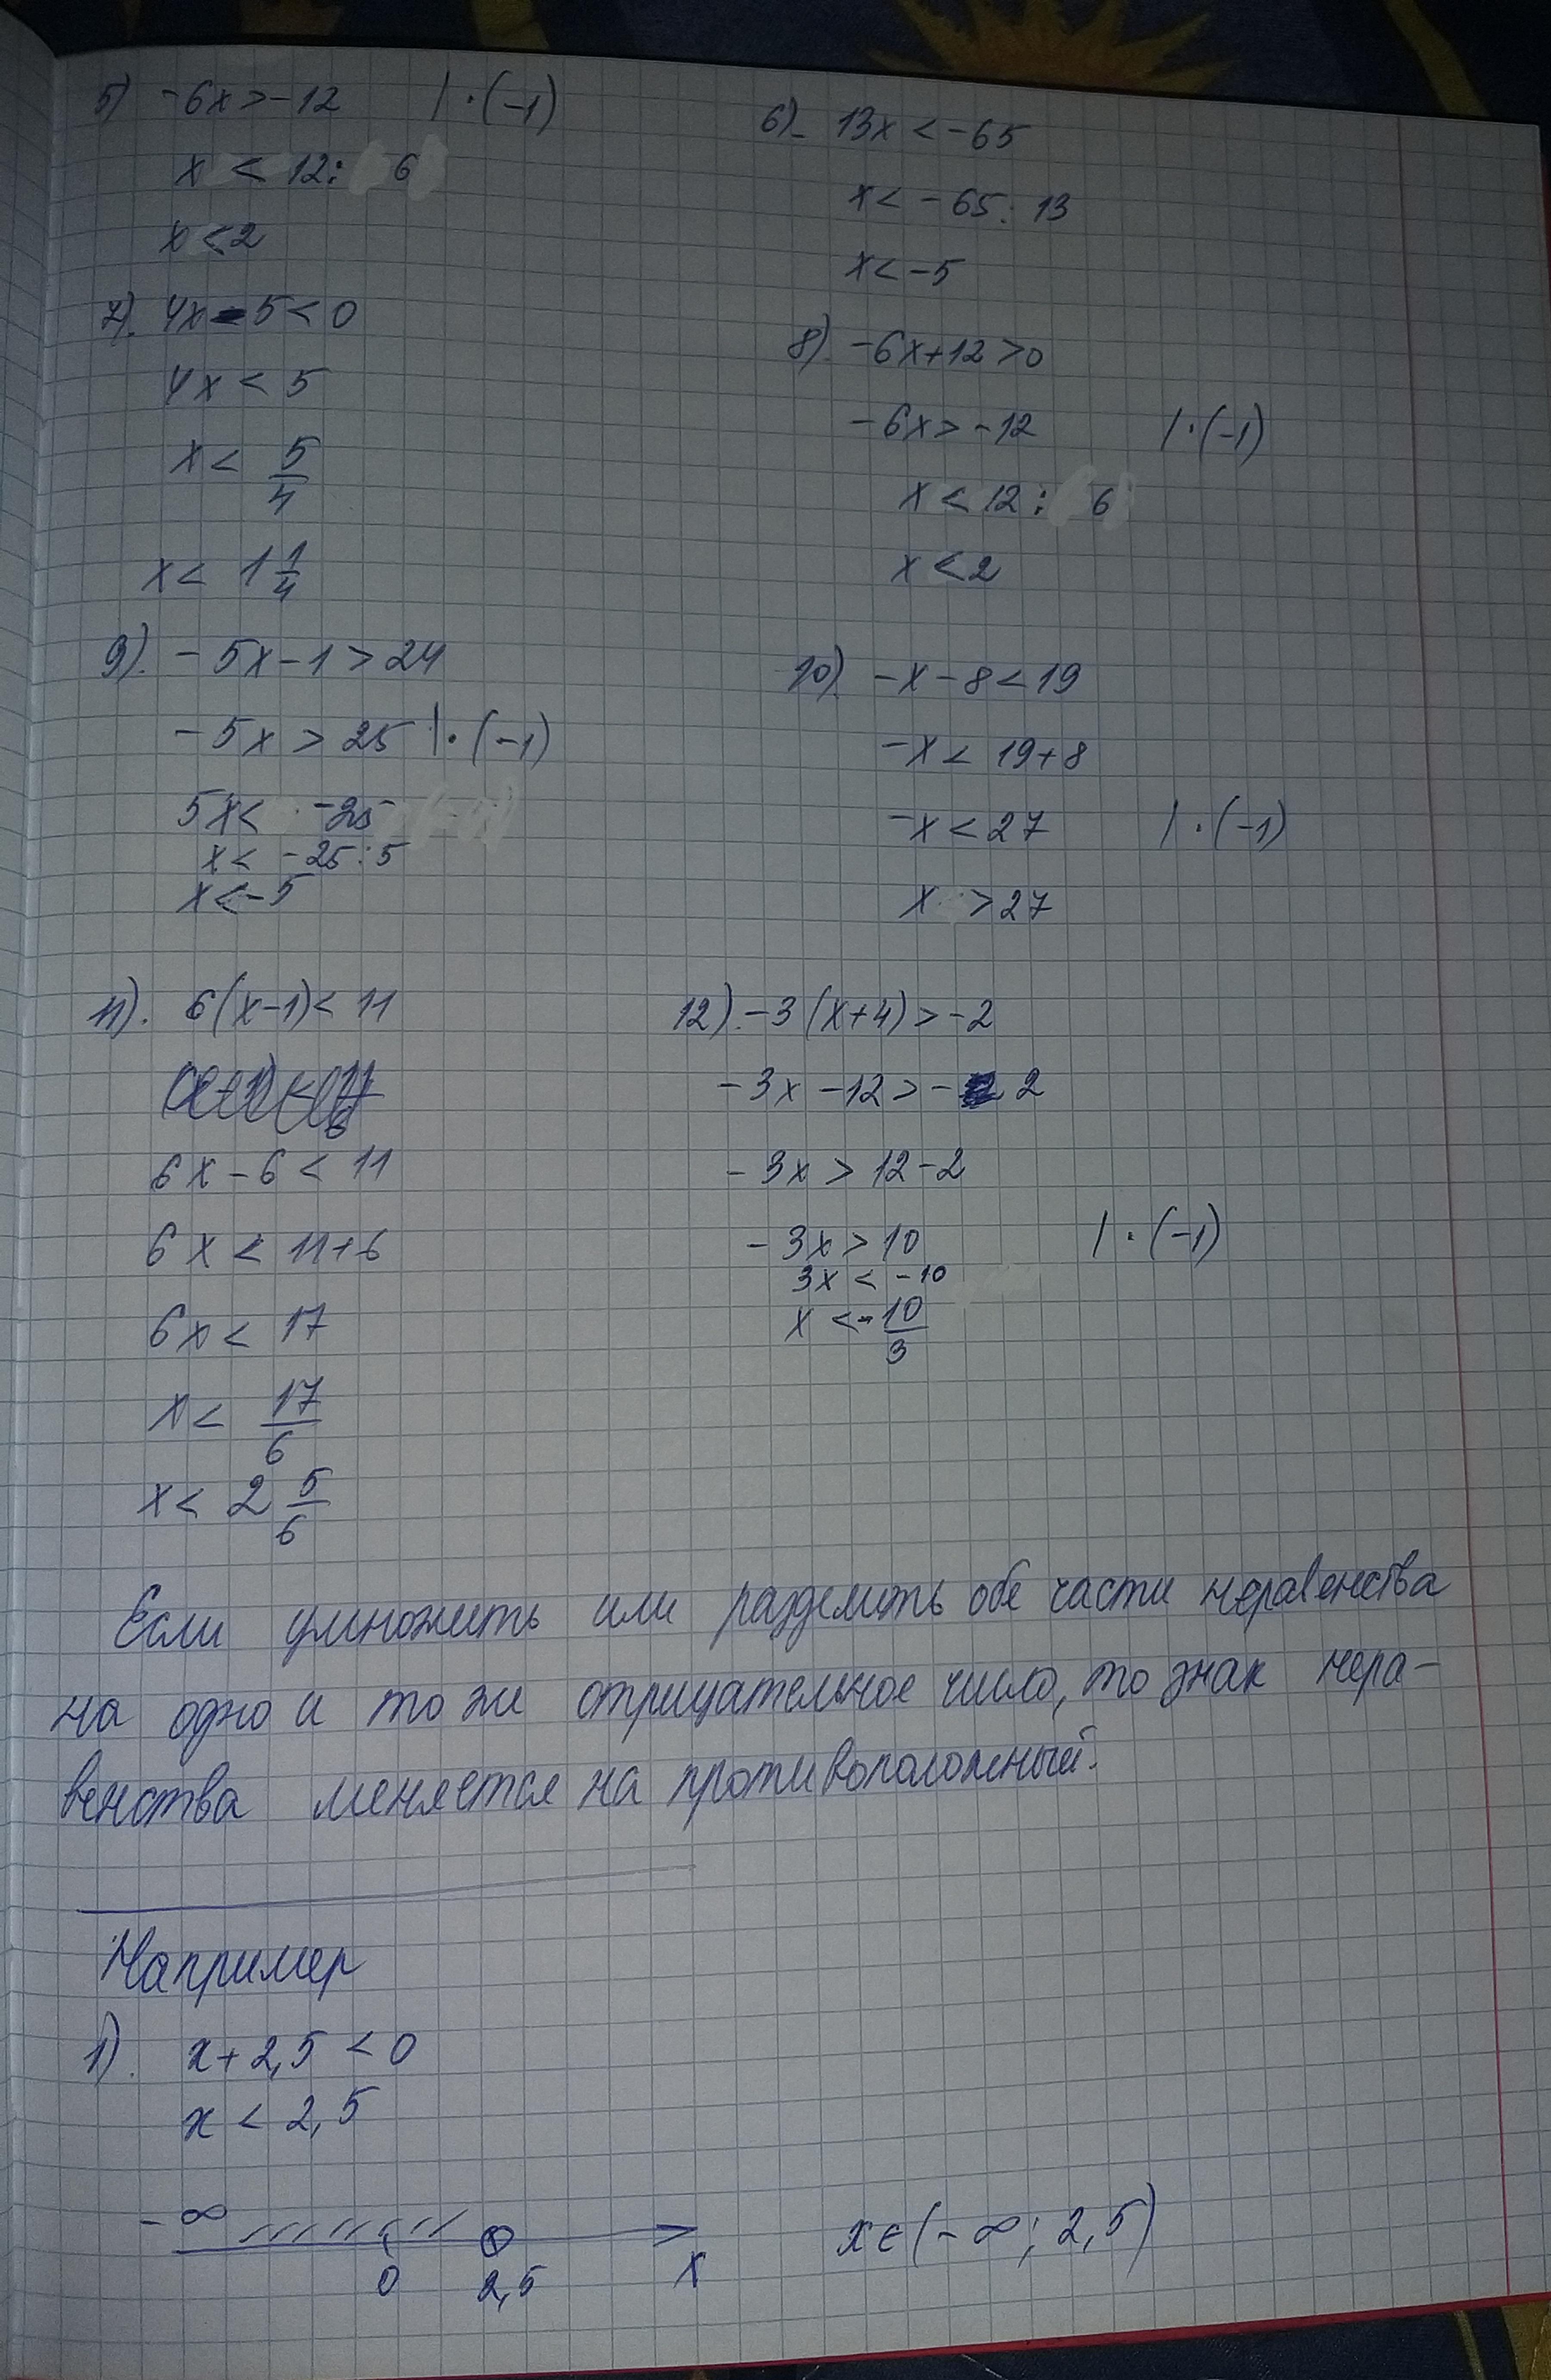 5) -6x>-12 | · (-1)
x < 12: 6
x<2
6) 13x < -65
x< -65 : 13
x< -5
7). 4x-5<0
4x < 5
x < 5/4
x < 1 1/4
8). -6x+12>0
-6x>-12 | · (-1)
x < 12 : 6
x<2
9). -5x-1>24
-5x > 25 | · (-1)
5x< -25
x< -25:5
x<-5
10). -x-8<19
-x< 19+8
-x<27 | · (-1)
x >27
11). 6(x-1)< 11
6x-6 < 11
6x < 11+6
6x < 17
x< 17/6
x< 2 5/6
12). -3(x+4)>-2
-3x-12>- 2
-3x > 12-2
-3x>10 | · (-1)
3x < -10
x <- 10/3
Если умножить или разделить обе части неравенства
на одно и то же отрицательное число, то знак нера-
венства меняется на противоположный.
Например
1). x+2,5 <0
x < 2,5
-∞
0 2,5 x
x∈(-∞; 2,5)